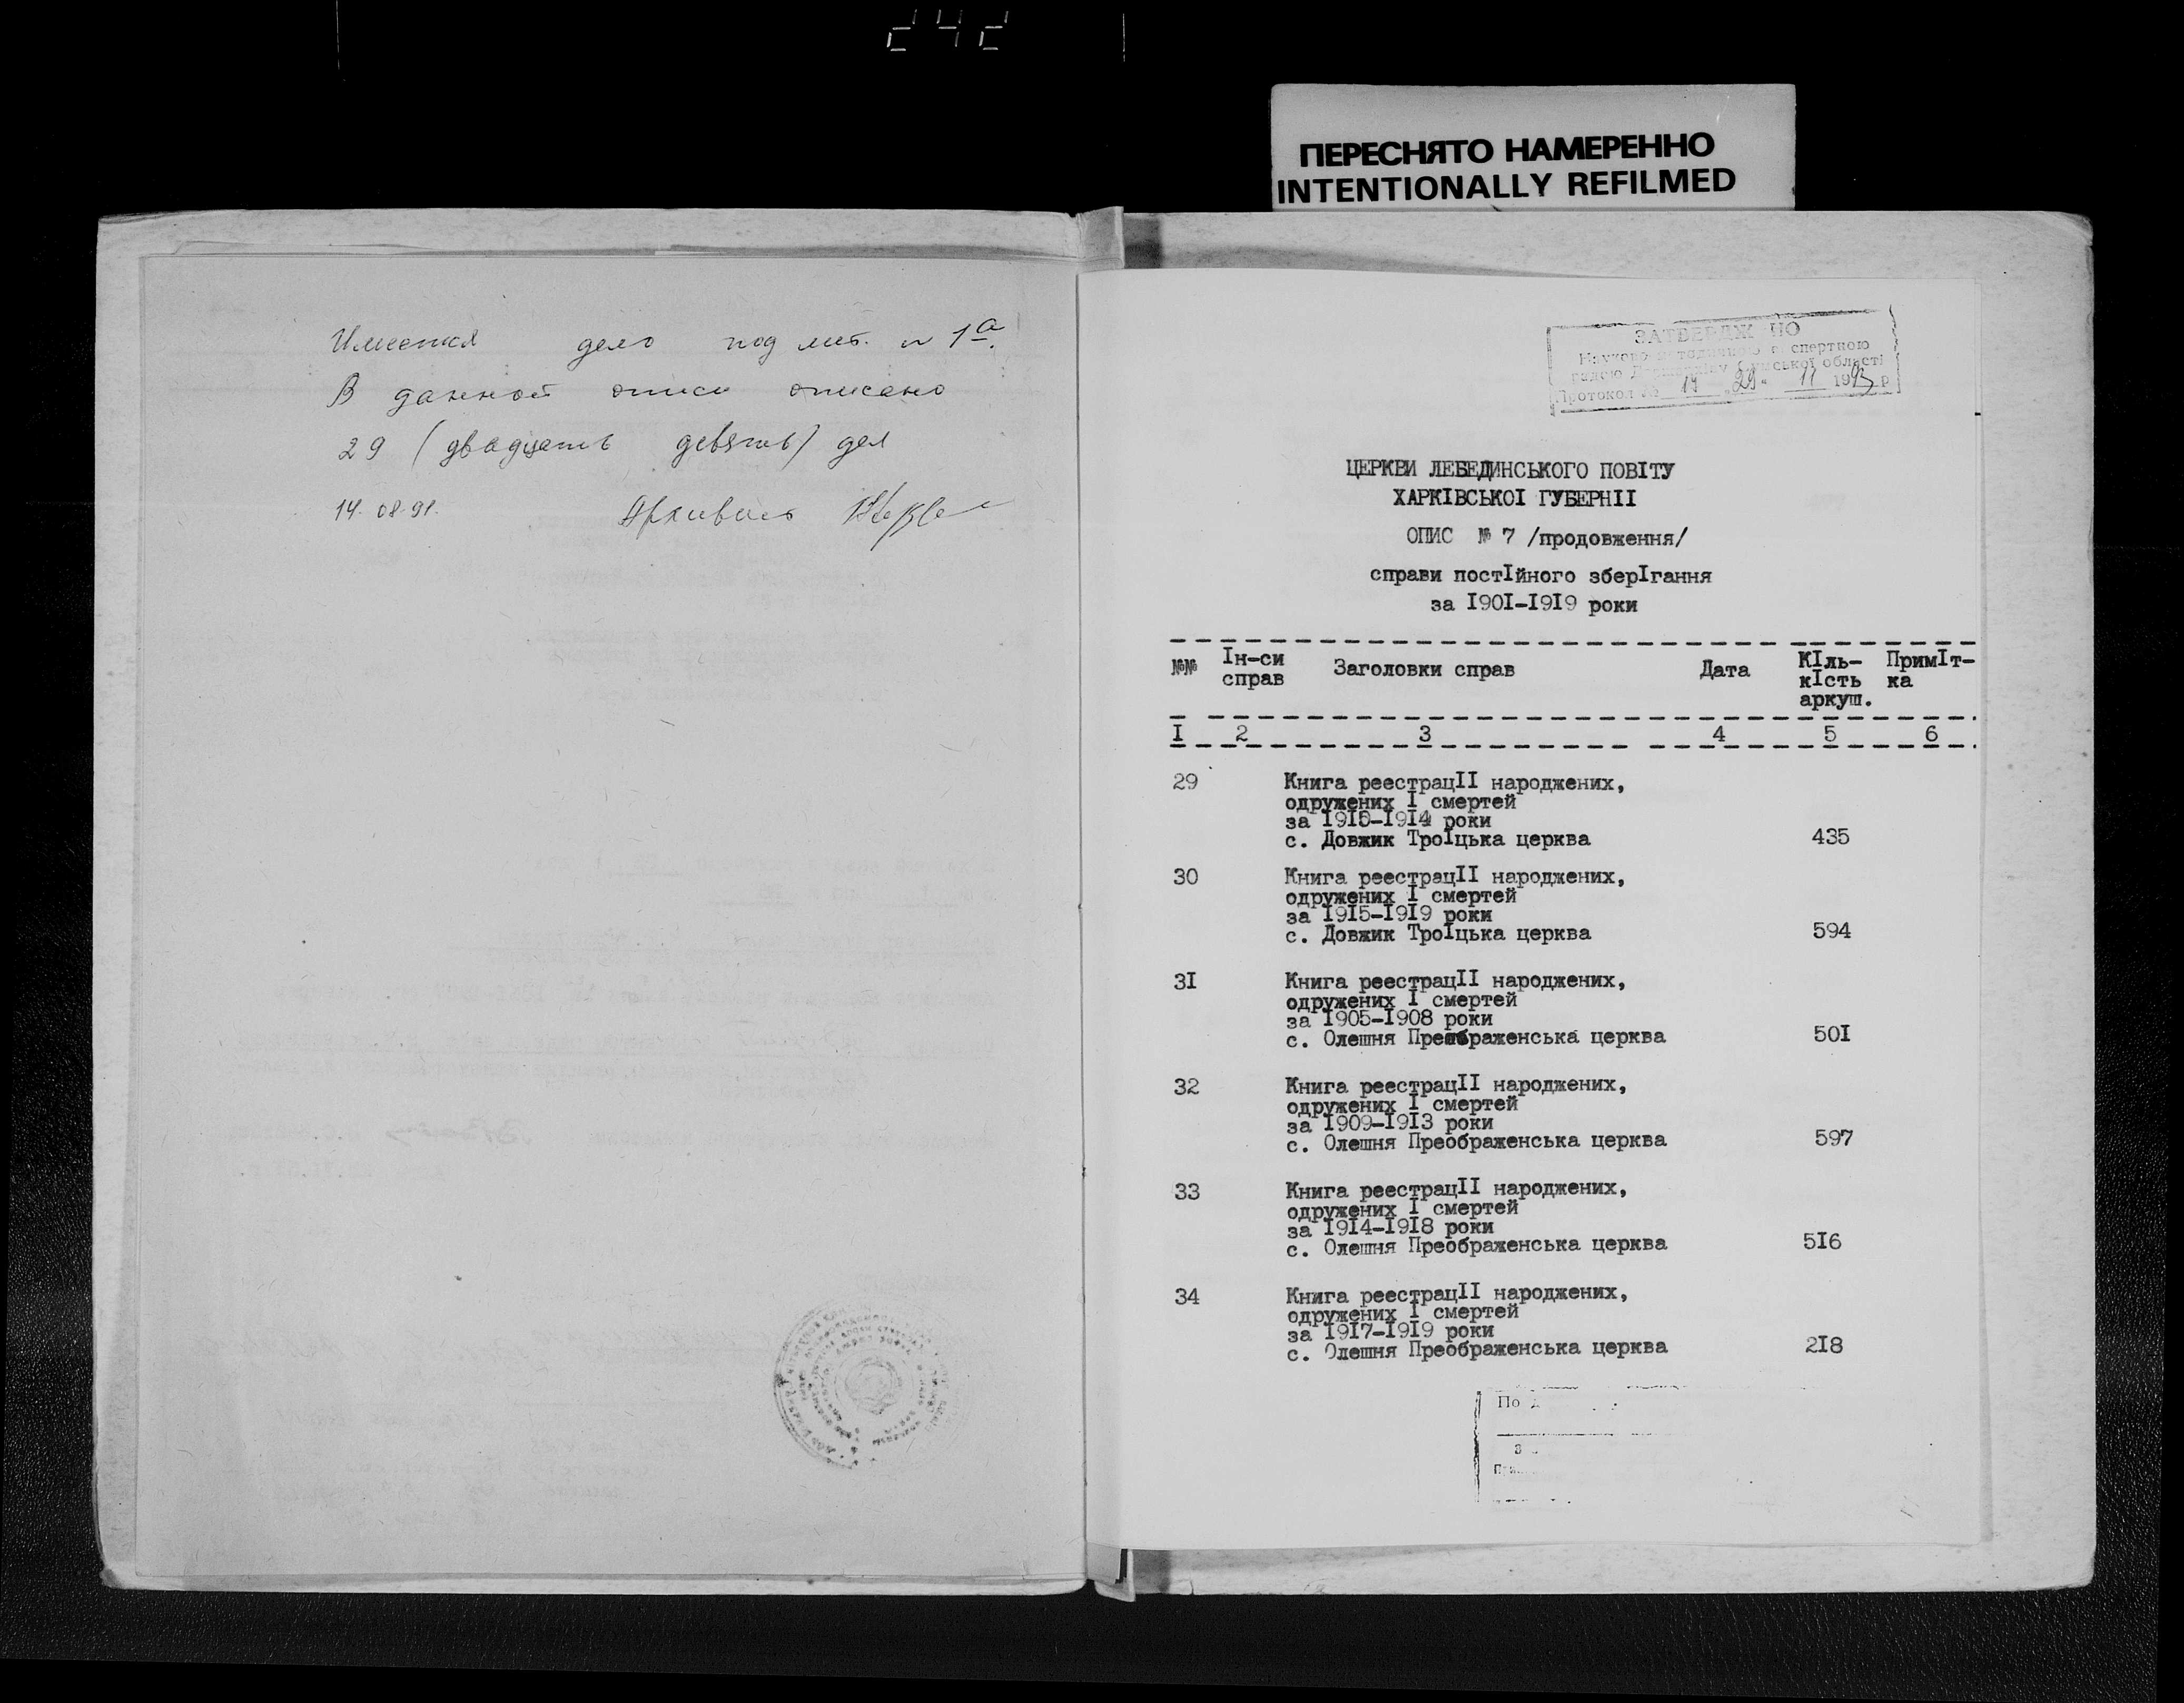 242
ПЕРЕСНЯТО НАМЕРЕННО
INTENTIONALLY REFILMED
Имеется дело под лит. № 1а.
В данной описи описано
29 (двадцать девять) дел
14.08.91. Архивист
ЗАТВЕРДЖ НО
спертною
радою Сумської області
Протокол № 19 "29" 11 1993 р
ЦЕРКВИ ЛЕБЕДИНСЬКОГО ПОВІТУ
ХАРКІВСЬКОІ ГУБЕРНІІ
ОПИС № 7 /продовження/
справи постІйного зберІгання
за І90І-І9І9 роки
№№ Ін-си справ Заголовки справ Дата КІль-кІсть аркуш. ПримІт-ка
І 2 3 4 5 6
29 Книга реестрацІІ народжених,
одружених І смертей
за І9І0-І9І4 роки
с. Довжик ТроІцька церква 435
30 Книга реестрацІІ народжених,
одружених І смертей
за І9І5-І9І9 роки
с. Довжик ТроІцька церква 594
3І Книга реестрацІІ народжених,
одружених І смертей
за І905-І908 роки
с. Олешня Преображенська церква 50І
32 Книга реестрацІІ народжених,
одружених І смертей
за І909-І9І3 роки
с. Олешня Преображенська церква 597
33 Книга реестрацІІ народжених,
одружених І смертей
за І9І4-І9І8 роки
с. Олешня Преображенська церква 5І6
34 Книга реестрацІІ народжених,
одружених І смертей
за І9І7-І9І9 роки
с. Олешня Преображенська церква 2І8